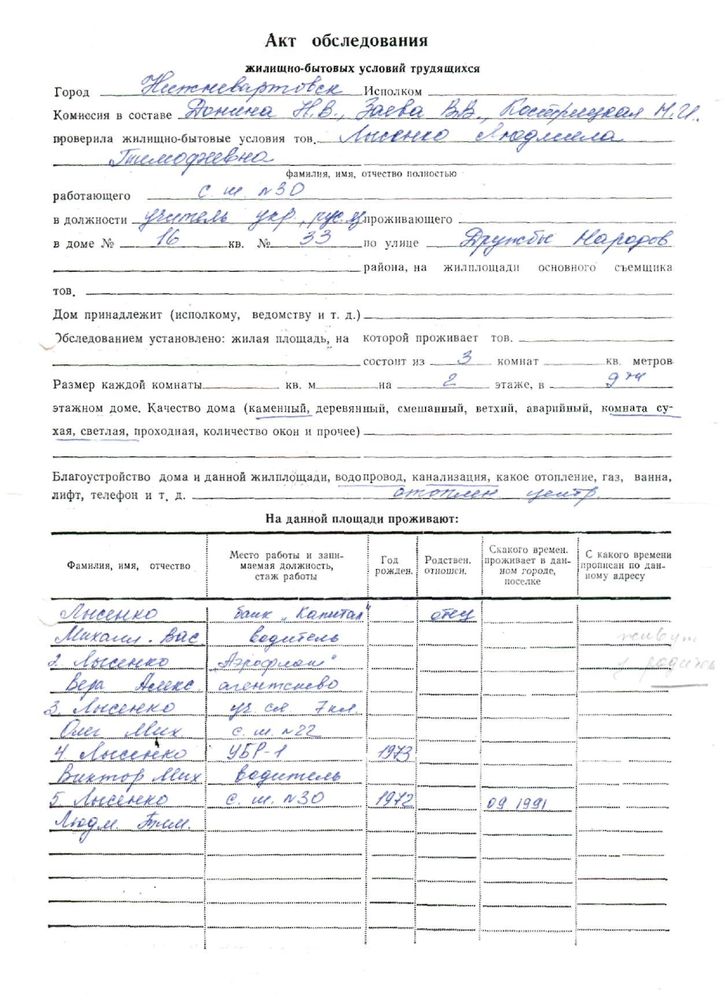 Акт обследования
жилищно-бытовых условий трудящихся
Город Нижневартовск Исполком
Комиссия в составе Донина Н.В., Заева В.В., Кострицкая М.И.
проверила жилищно-бытовые условия тов. Лысенко Людмила
Тимофеевна
фамилия, имя, отчество полностью
работающего с ш N30
в должности учитель укр, рус. проживающего
в доме № 16 кв. № 33 по улице Дружбы Народов
района, на жилплощади основного съемщика
тов.
Дом принадлежит (исполкому, ведомству и т. д.)
Обследованием установлено: жилая площадь, на которой проживает тов.
состоит из 3 комнат кв. метров
Размер каждой комнаты кв. м на 2 этаже, в 9ти
этажном доме. Качество дома (каменный, деревянный, смешанный, ветхий, аварийный, комната су-
хая, светлая, проходная, количество окон и прочее)
Благоустройство дома и данной жилплощади, водопровод, канализация, какое отопление, газ, ванна,
лифт, телефон и т. д. отоплен центр.
На данной площади проживают:
Фамилия, имя, отчество Место работы и зани- Год Родствен. Скакого времен. С какого времени
маемая должность, рожден. отношен. проживает в дан- прописан по дан-
стаж работы ном городе, ному адресу
поселке
Лысенко банк "Капитал" отец
Михаил. Вас водитель живут
2. Лысенко "Аэрофлот" у родит
Вера Алекс агентство
3. Лысенко уч ся 7 кл
Олег Мих с. ш. N22
4 Лысенко УБР-1 1973
Виктор Мих водитель
5 Лысенко с. ш. N30 1972 09 1991
Людм. Тим.